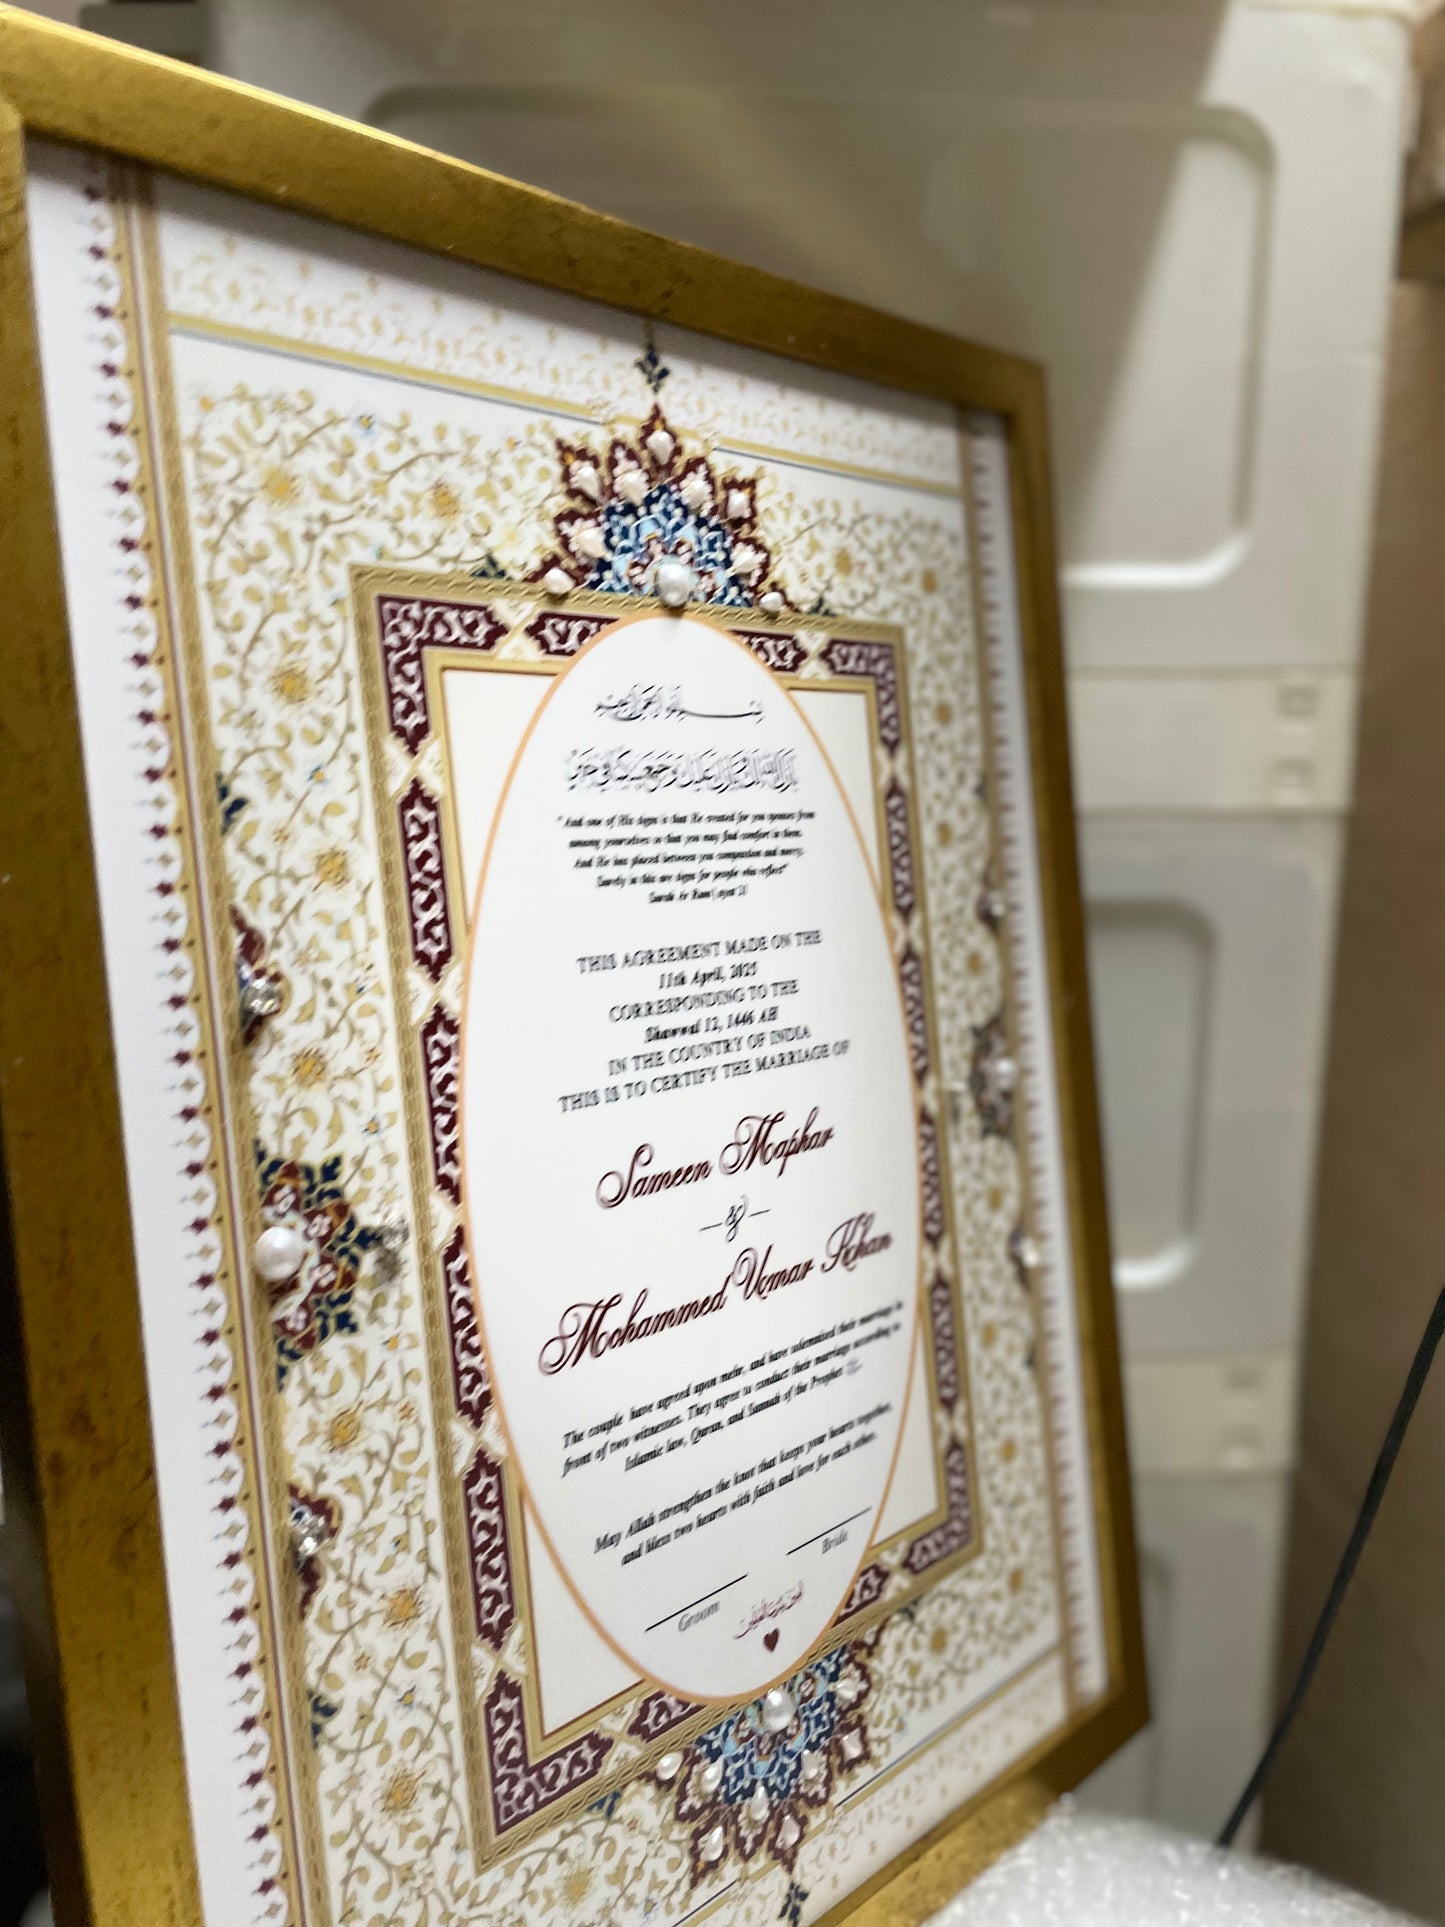 "And one of His signs is that He created for you spouses from
among yourselves so that you may find comfort in them.
And He has placed between you compassion and mercy.
Surely in this are signs for people who reflect"
Surah Ar Rum ( ayat 21
THIS AGREEMENT MADE ON THE
11th April, 2025
CORRESPONDING TO THE
Shawwal 12, 1446 AH
IN THE COUNTRY OF INDIA
THIS IS TO CERTIFY THE MARRIAGE OF
Sameen Maphar
&
Mohammed Uomar Khan
The couple have agreed upon mehr, and have solemnized their marriage in
front of two witnesses. They agree to conduct their marriage according to
Islamic law, Quran, and Sunnah of the Prophet
May Allah strengthen the knot that keeps your hearts together,
and bless two hearts with faith and love for each other.
Bride
Groom